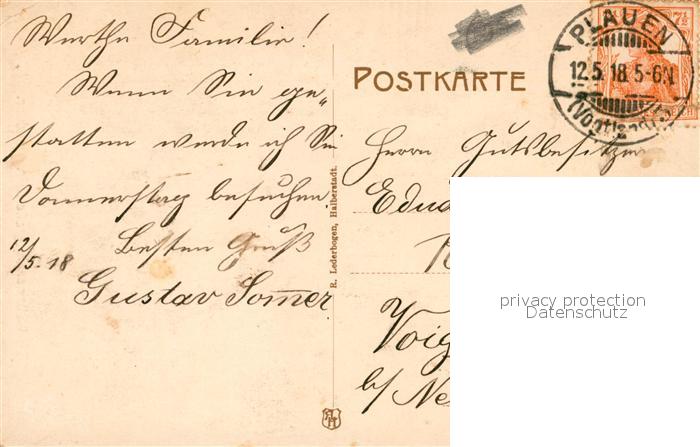 Werthe Familie!
Wenn Sie ge„
statten werde ich Sie
Donnerstag besuchen.
12/5.18 Besten Gruß
Gustav Som̅er
R. Lederbogen, Halberstadt.
POSTKARTE
7½
PLAUEN
12.5.18.5-6N
(Vogtland)
Herrn Gutsbesitzer
Edu
Voig
b/ Ne
privacy protection
Datenschutz